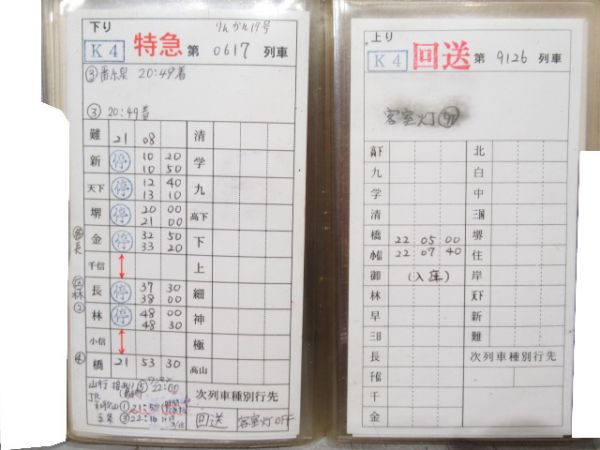 下り
りんかん19号
K4 特急 第 0617 列車
20:49着
③ 20:49着
難 21 08 清
新 停 10 20 学
10 50
天下 停 12 40 九
13 10
堺 停 20 00 高下
21 00
金 停 32 50 下
33 20
千信 上
長 停 37 30 細
38 00
林 停 48 00 神
48 30
小信 極
橋 21 53 30 高山
④
次列車種別行先
回送 客室灯OFF
上り
K4 回送 第 9126 列車
客室灯
高下 北
九 白
学 中
清 三国
橋 22 05 00 堺
22 07 40 住
御 (入庫) 岸
林 天下
早 新
三日 難
長 次列車種別行先
千信
千
金